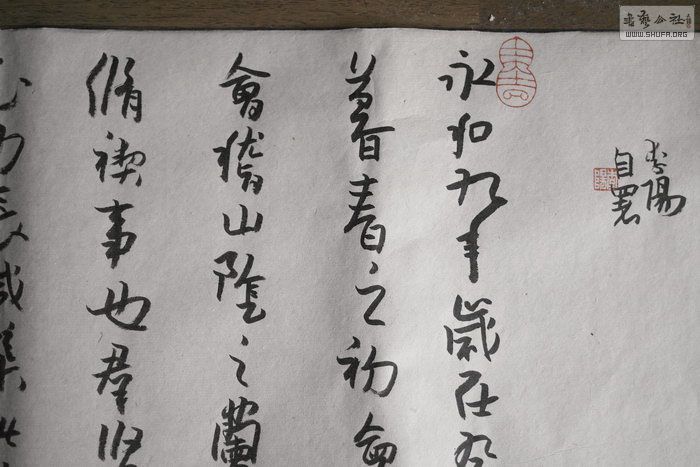 永和九年歲在癸
暮春之初會
會稽山陰之蘭
脩禊事也羣賢
咸集此
自署
書藝公社
WWW.SHUFA.ORG